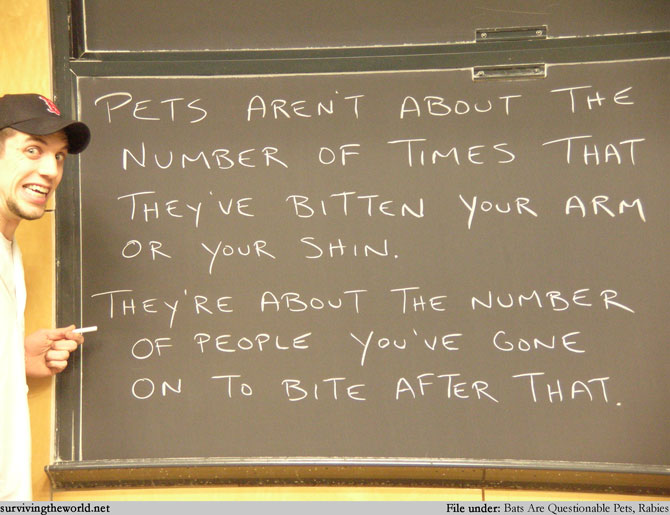 PETS AREN'T ABOUT THE
NUMBER OF TIMES THAT
THEY'VE BITTEN YOUR ARM
OR YOUR SHIN.
THEY'RE ABOUT THE NUMBER
OF PEOPLE YOU'VE GONE
ON TO BITE AFTER THAT.
survivingtheworld.net File under: Bats Are Questionable Pets, Rabies